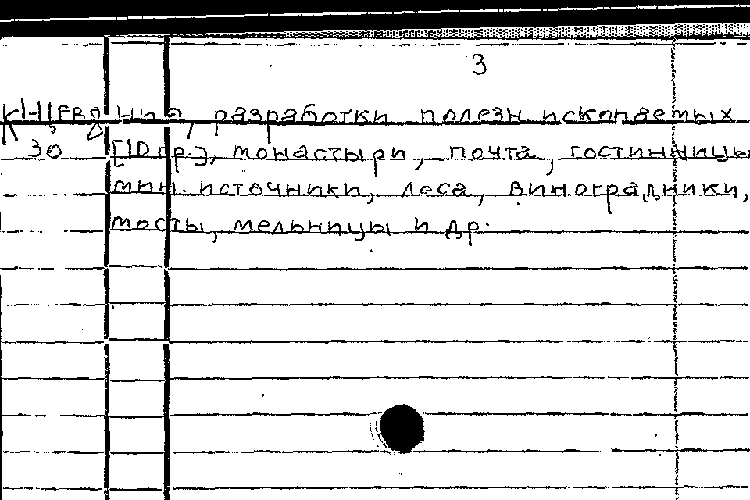 3
ния, разработки полезн ископаемых
30 [10 гр.], монастыри, почта, гостинницы
мин. источники, леса, виноградники,
мосты, мельницы и др.